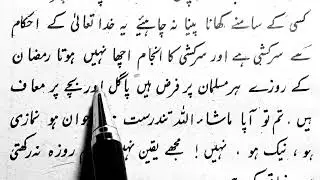 کسی کے سامنے کھانا پینا نہ چاہیئے یہ خدا تعالیٰ کے احکام
سے سرکشی ہے اور سرکشی کا انجام اچھا نہیں ہوتا رمضان
کے روزے ہر مسلمان پر فرض ہیں پاگل اور بچے پر معاف
ہیں۔ تم تو آپا ماشاء اللہ تندرست ہو
ہو، نیک ہو، نہیں! مجھے یقین نہیں روزہ نہ رکھتی